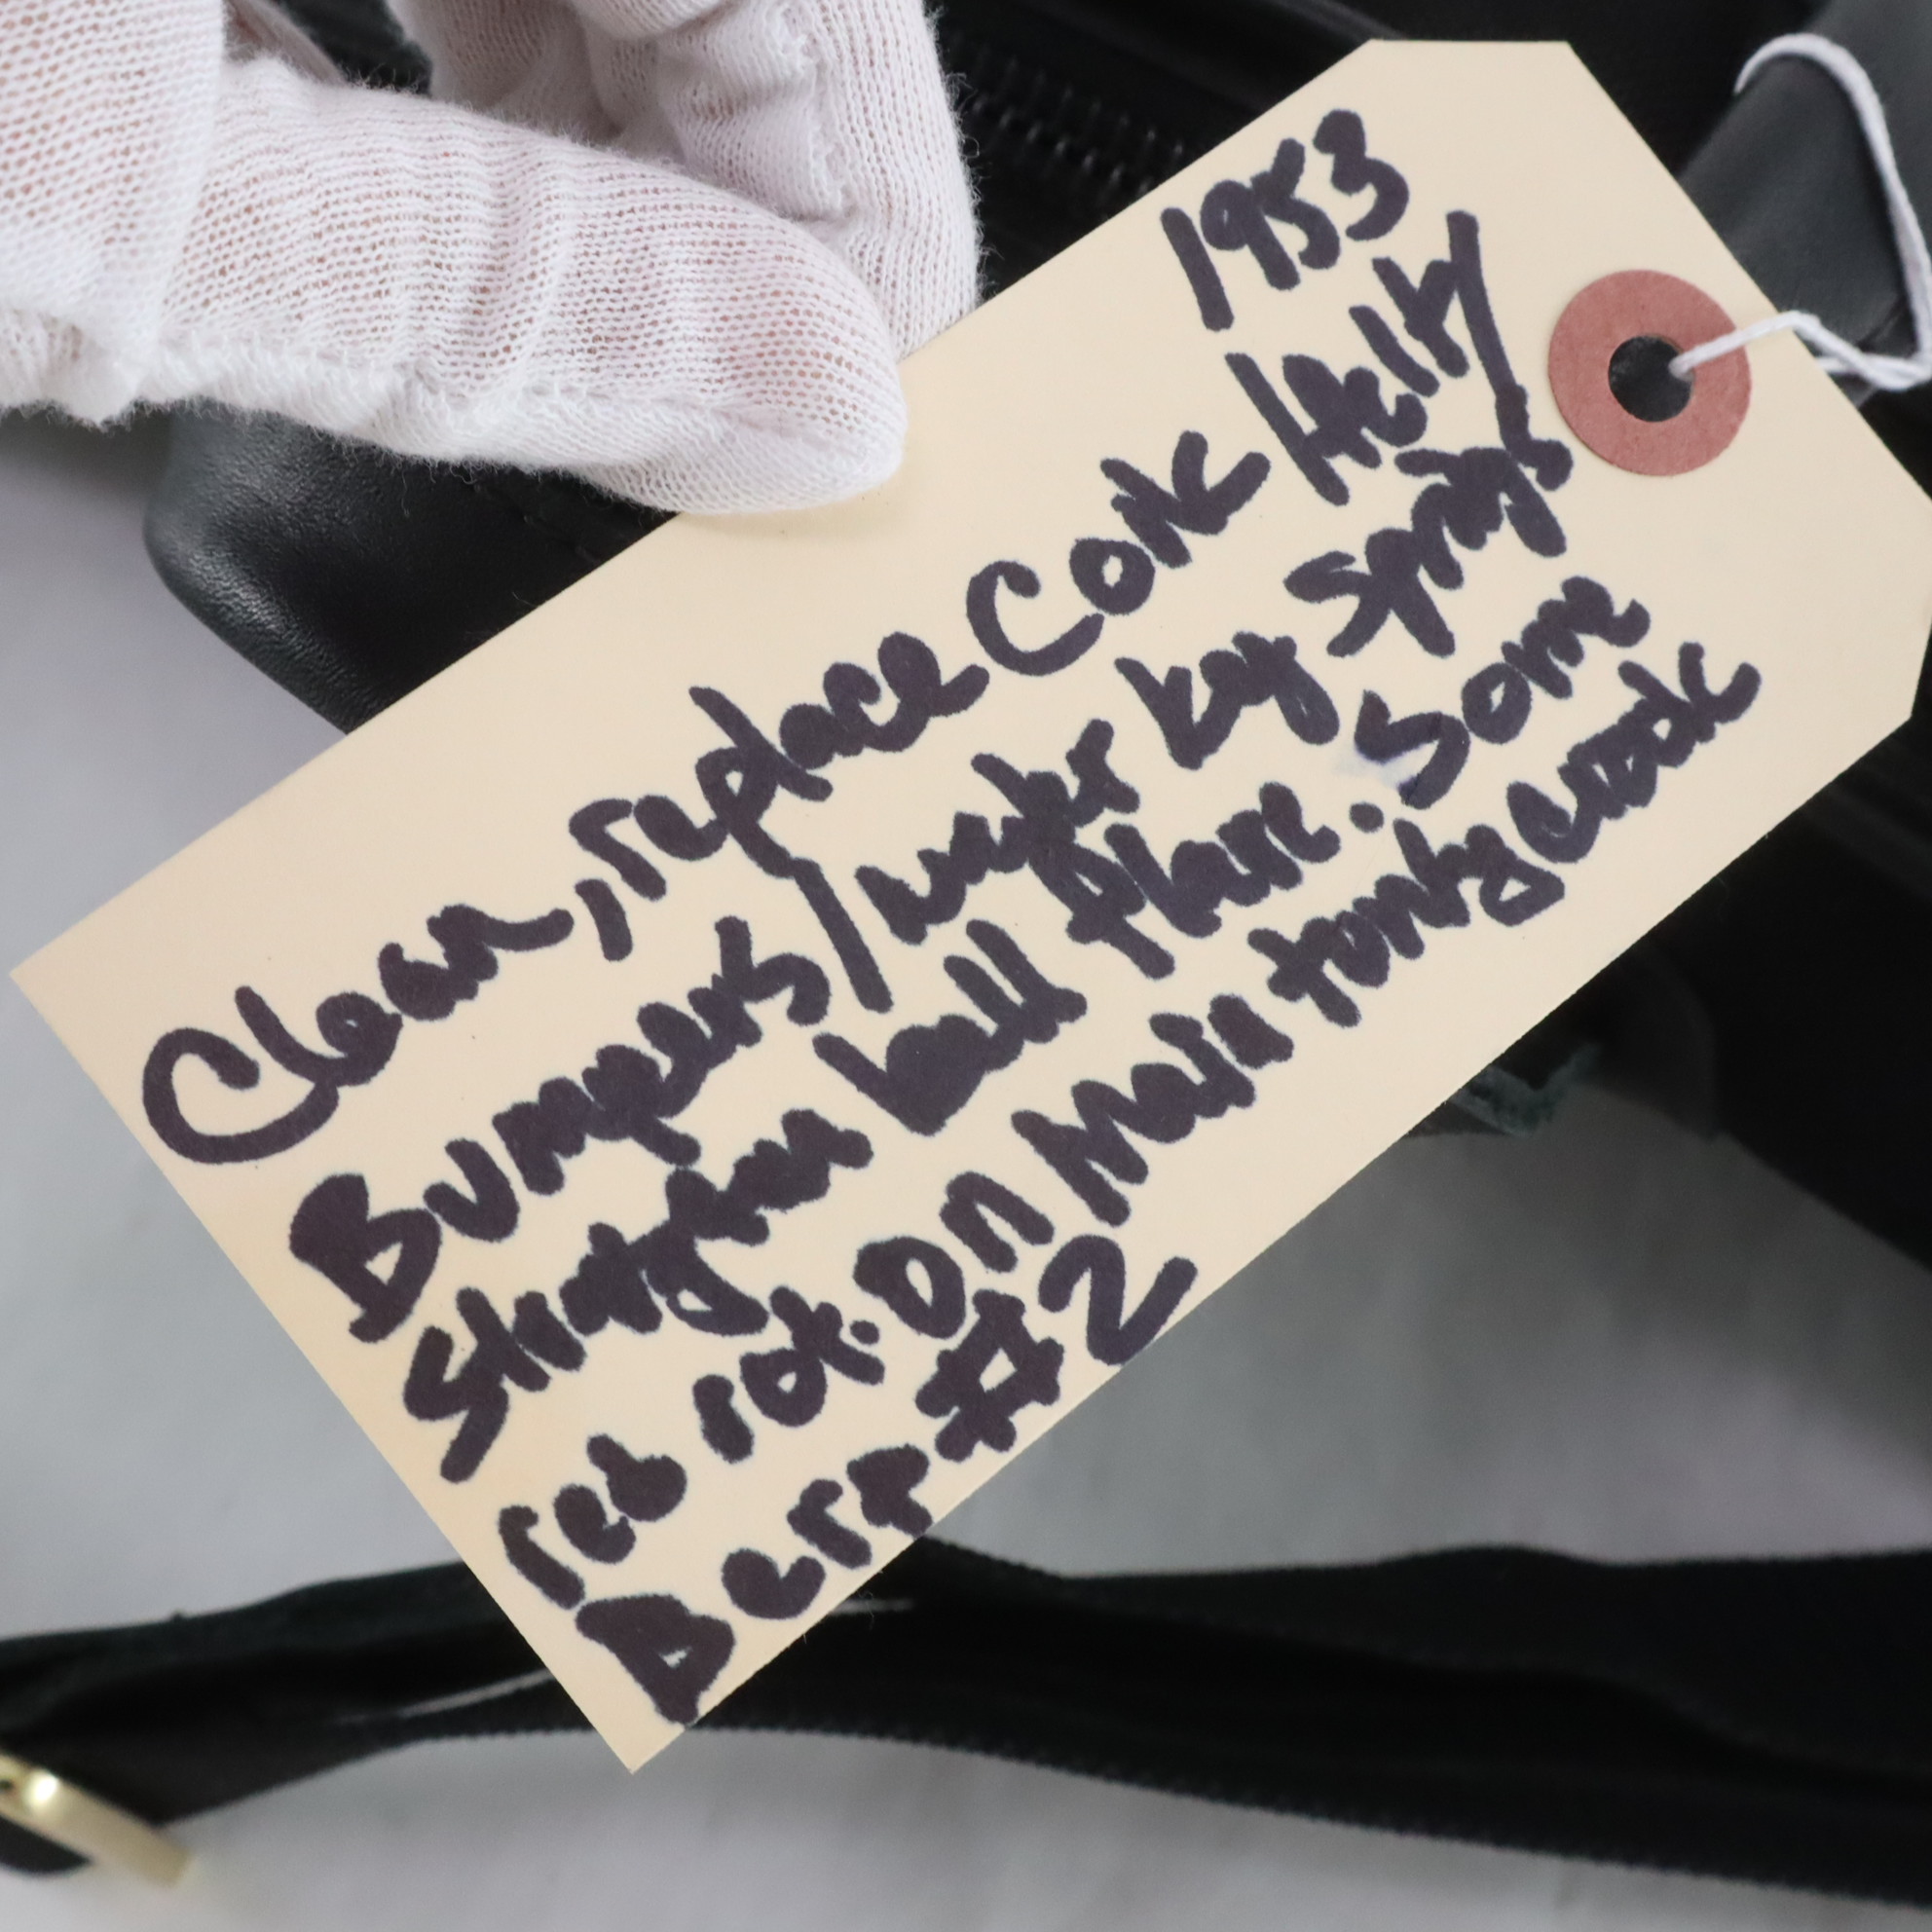 1953
Clean, replace Cork
Bumpers/water key springs
Straighten bell flare. Some
red rot. On Main tuning crook
Derr #2